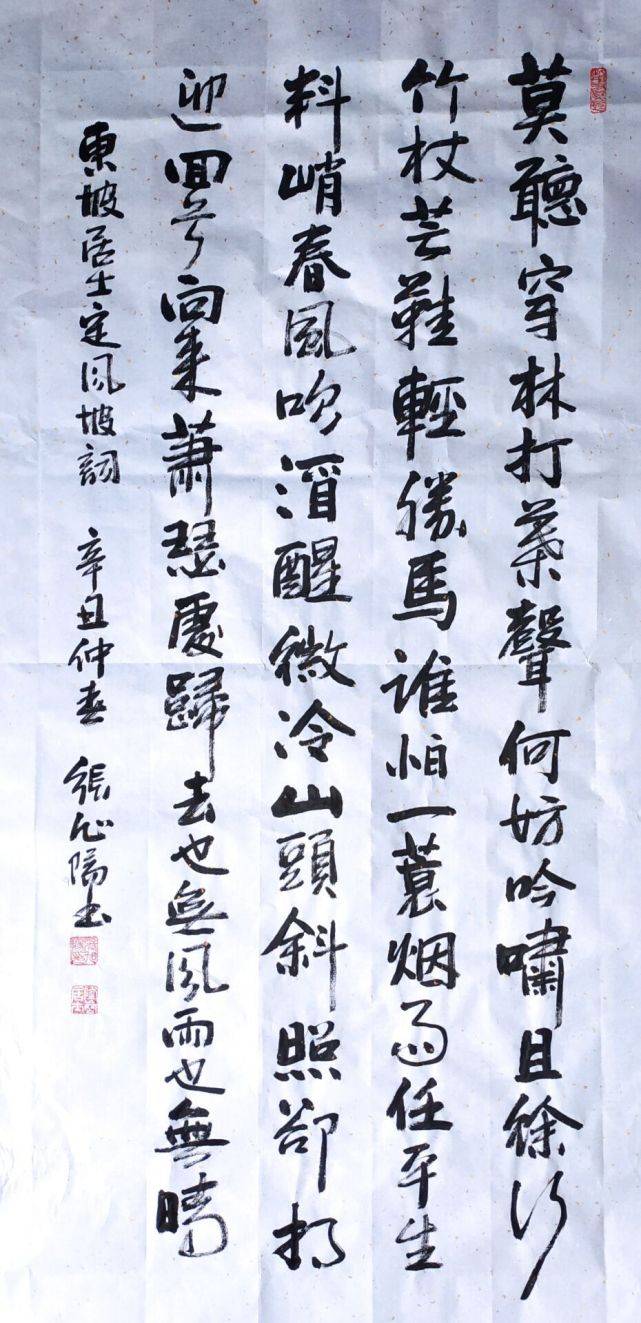 莫聽穿林打葉聲何妨吟嘯且徐行
竹杖芒鞋輕勝馬誰怕一蓑烟雨任平生
料峭春風吹酒醒微冷山頭斜照卻相
迎回首向来蕭瑟處歸去也無風雨也無晴
東坡居士定風坡詞 辛丑仲春 張心陽書